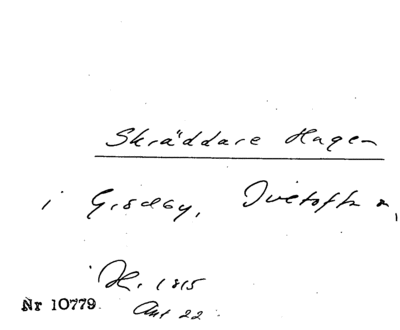 Skräddare Hagen
i Grödby, Ivetofta s,
H. 1815
Nr 10779. Akt 22